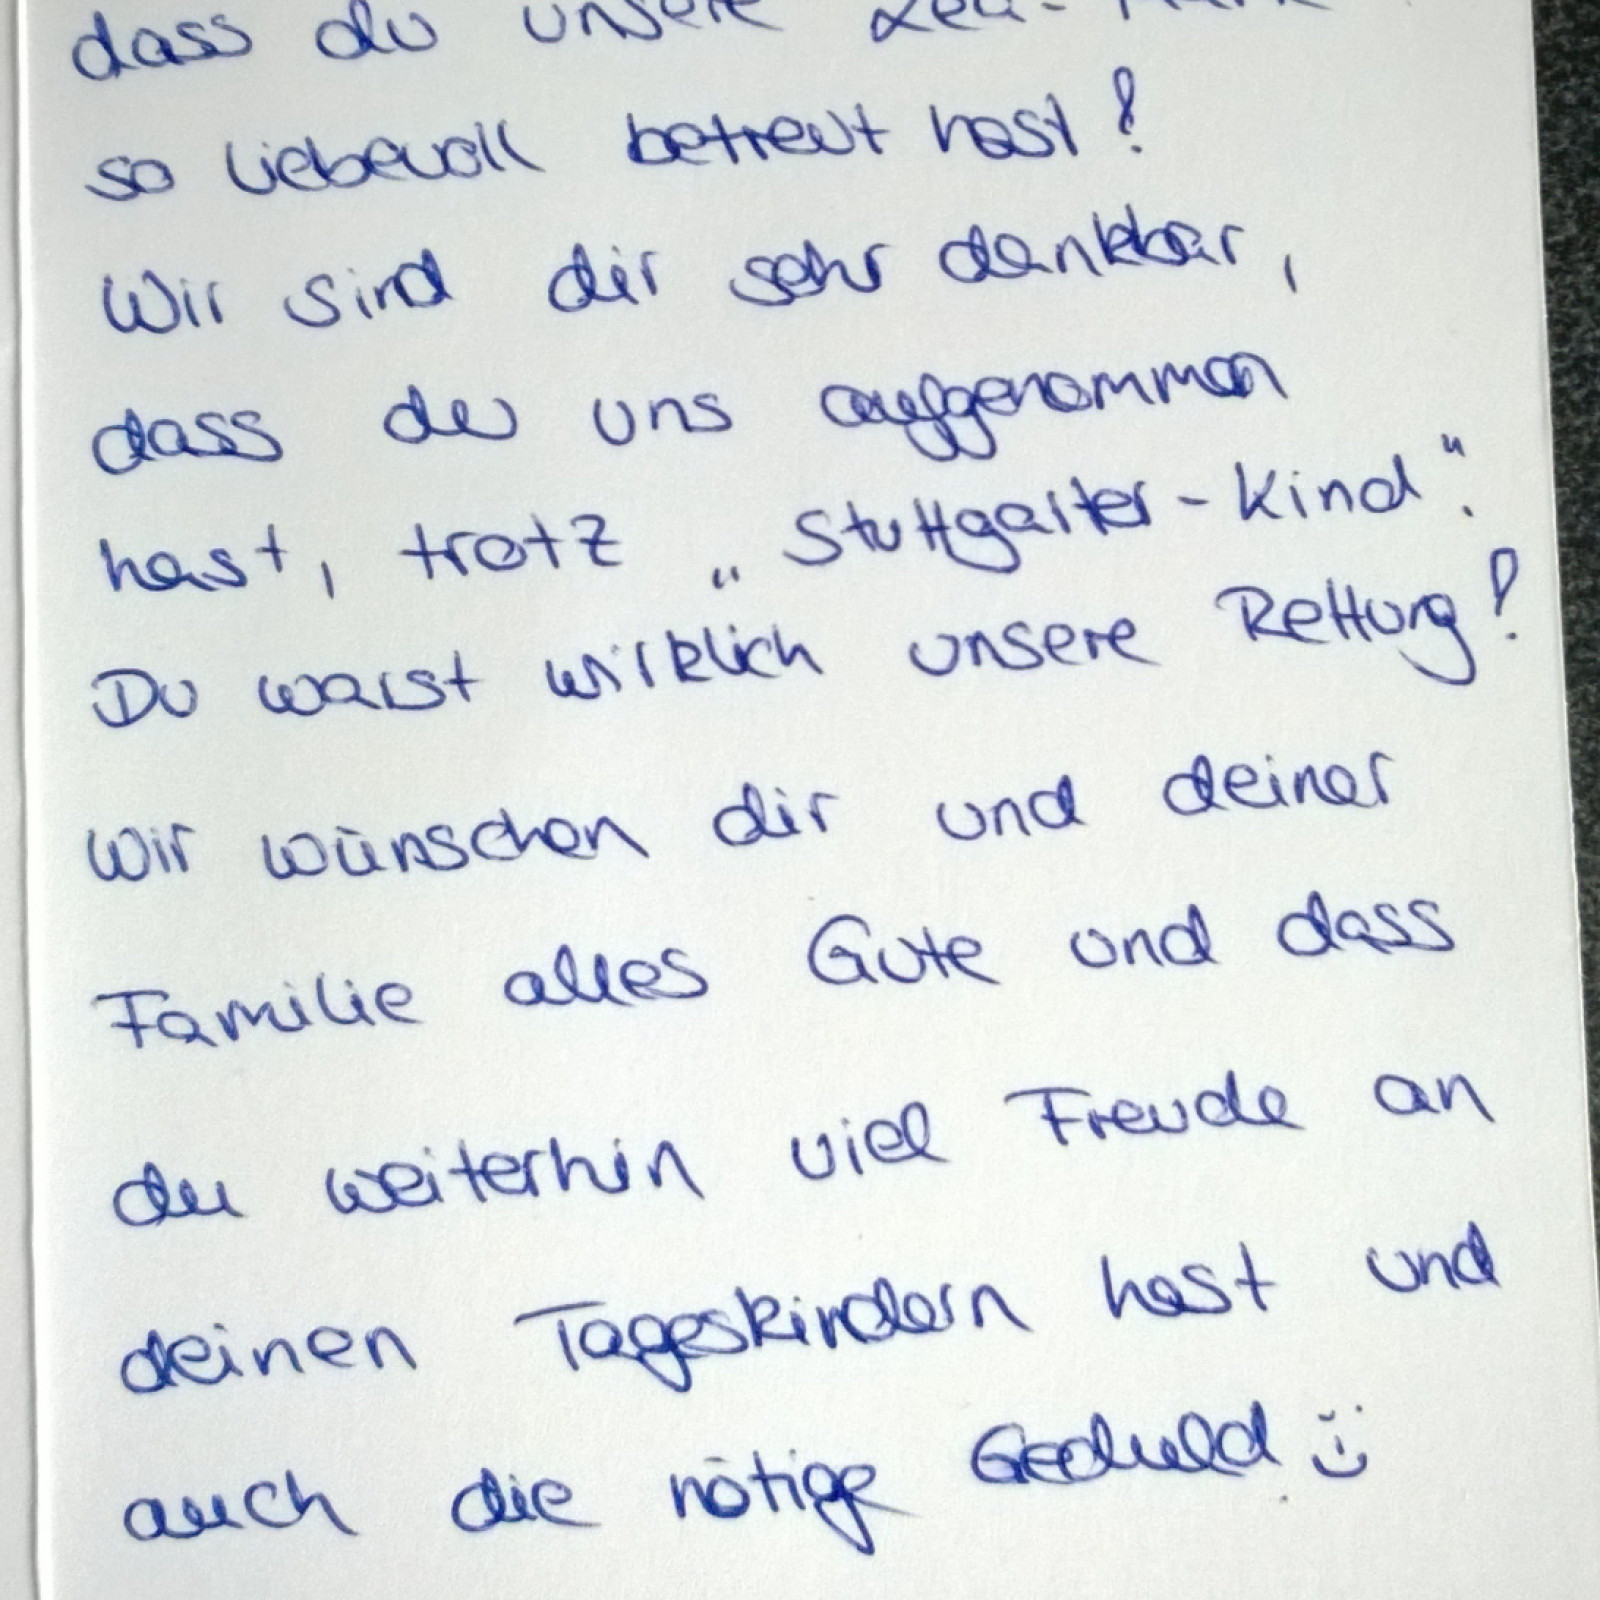 dass du unsere Lea-
so liebevoll betreut hast!
Wir sind dir sehr dankbar,
dass du uns aufgenommen
hast, trotz „Stuttgarter-Kind“.
Du warst wirklich unsere Rettung!
Wir wünschen dir und deiner
Familie alles Gute und dass
du weiterhin viel Freude an
deinen Tageskindern hast und
auch die nötige Geduld